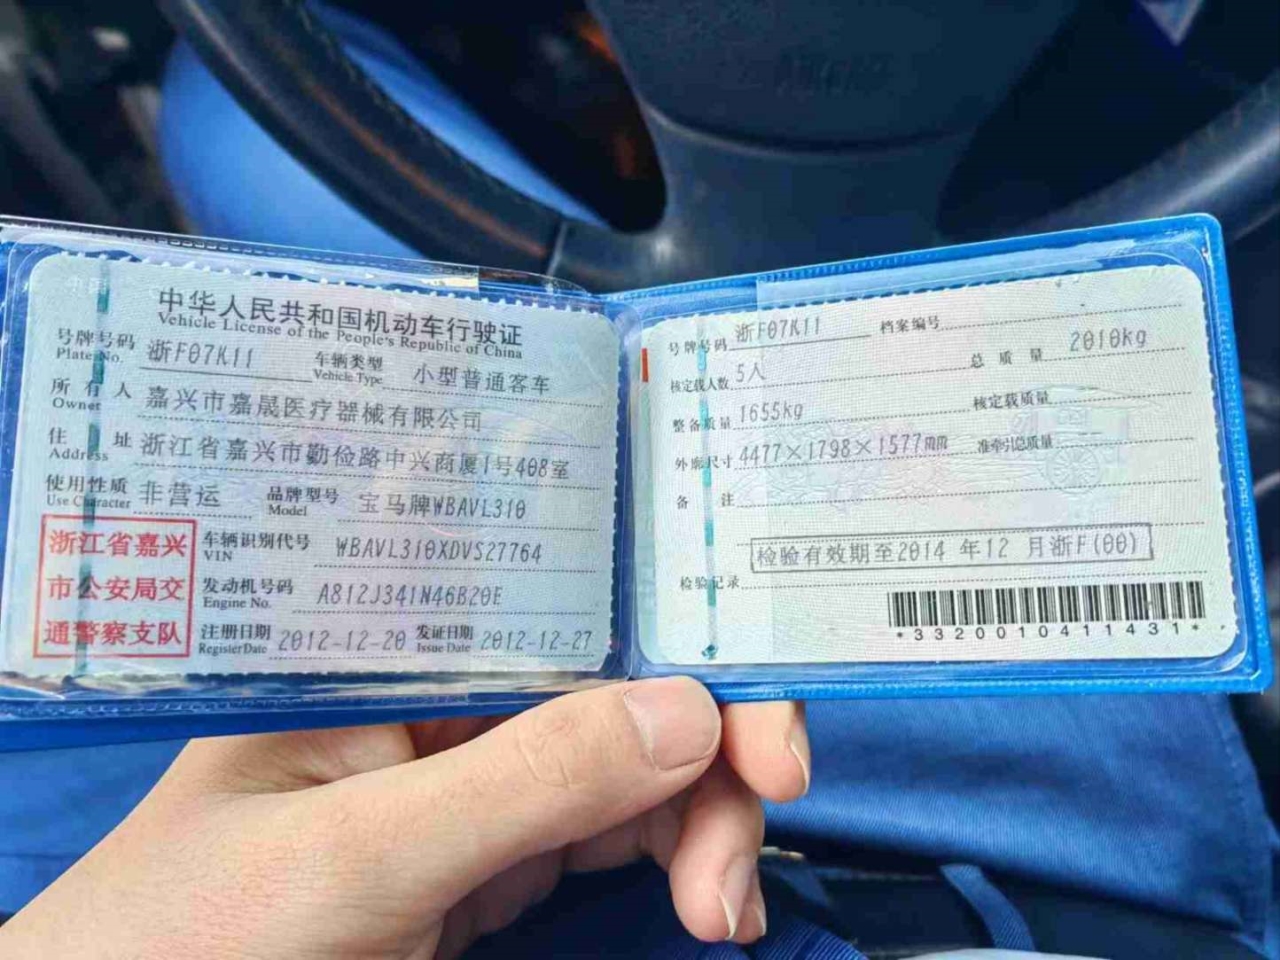 中华人民共和国机动车行驶证
Vehicle License of the People's Republic of China
号牌号码 浙F07K11 车辆类型 小型普通客车
Plate No. Vehicle Type
所有人 嘉兴市嘉晟医疗器械有限公司
Owner
住址 浙江省嘉兴市勤俭路中兴商厦1号408室
Address
使用性质 非营运 品牌型号 宝马牌WBAVL310
Use Character Model
浙江省嘉兴
市公安局交
通警察支队
车辆识别代号 WBAVL310XDVS27764
VIN
发动机号码 A812J341N46B20E
Engine No.
注册日期 2012-12-20 发证日期 2012-12-27
Register Date Issue Date
号牌号码 浙F07K11 档案编号
核定载人数 5人 总质量 2010kg
整备质量 1655kg 核定载质量
外廓尺寸 4477×1798×1577 准牵引总质量
备注
检验有效期至2014 年12 月浙F(00)
检验记录
*3320010411431*